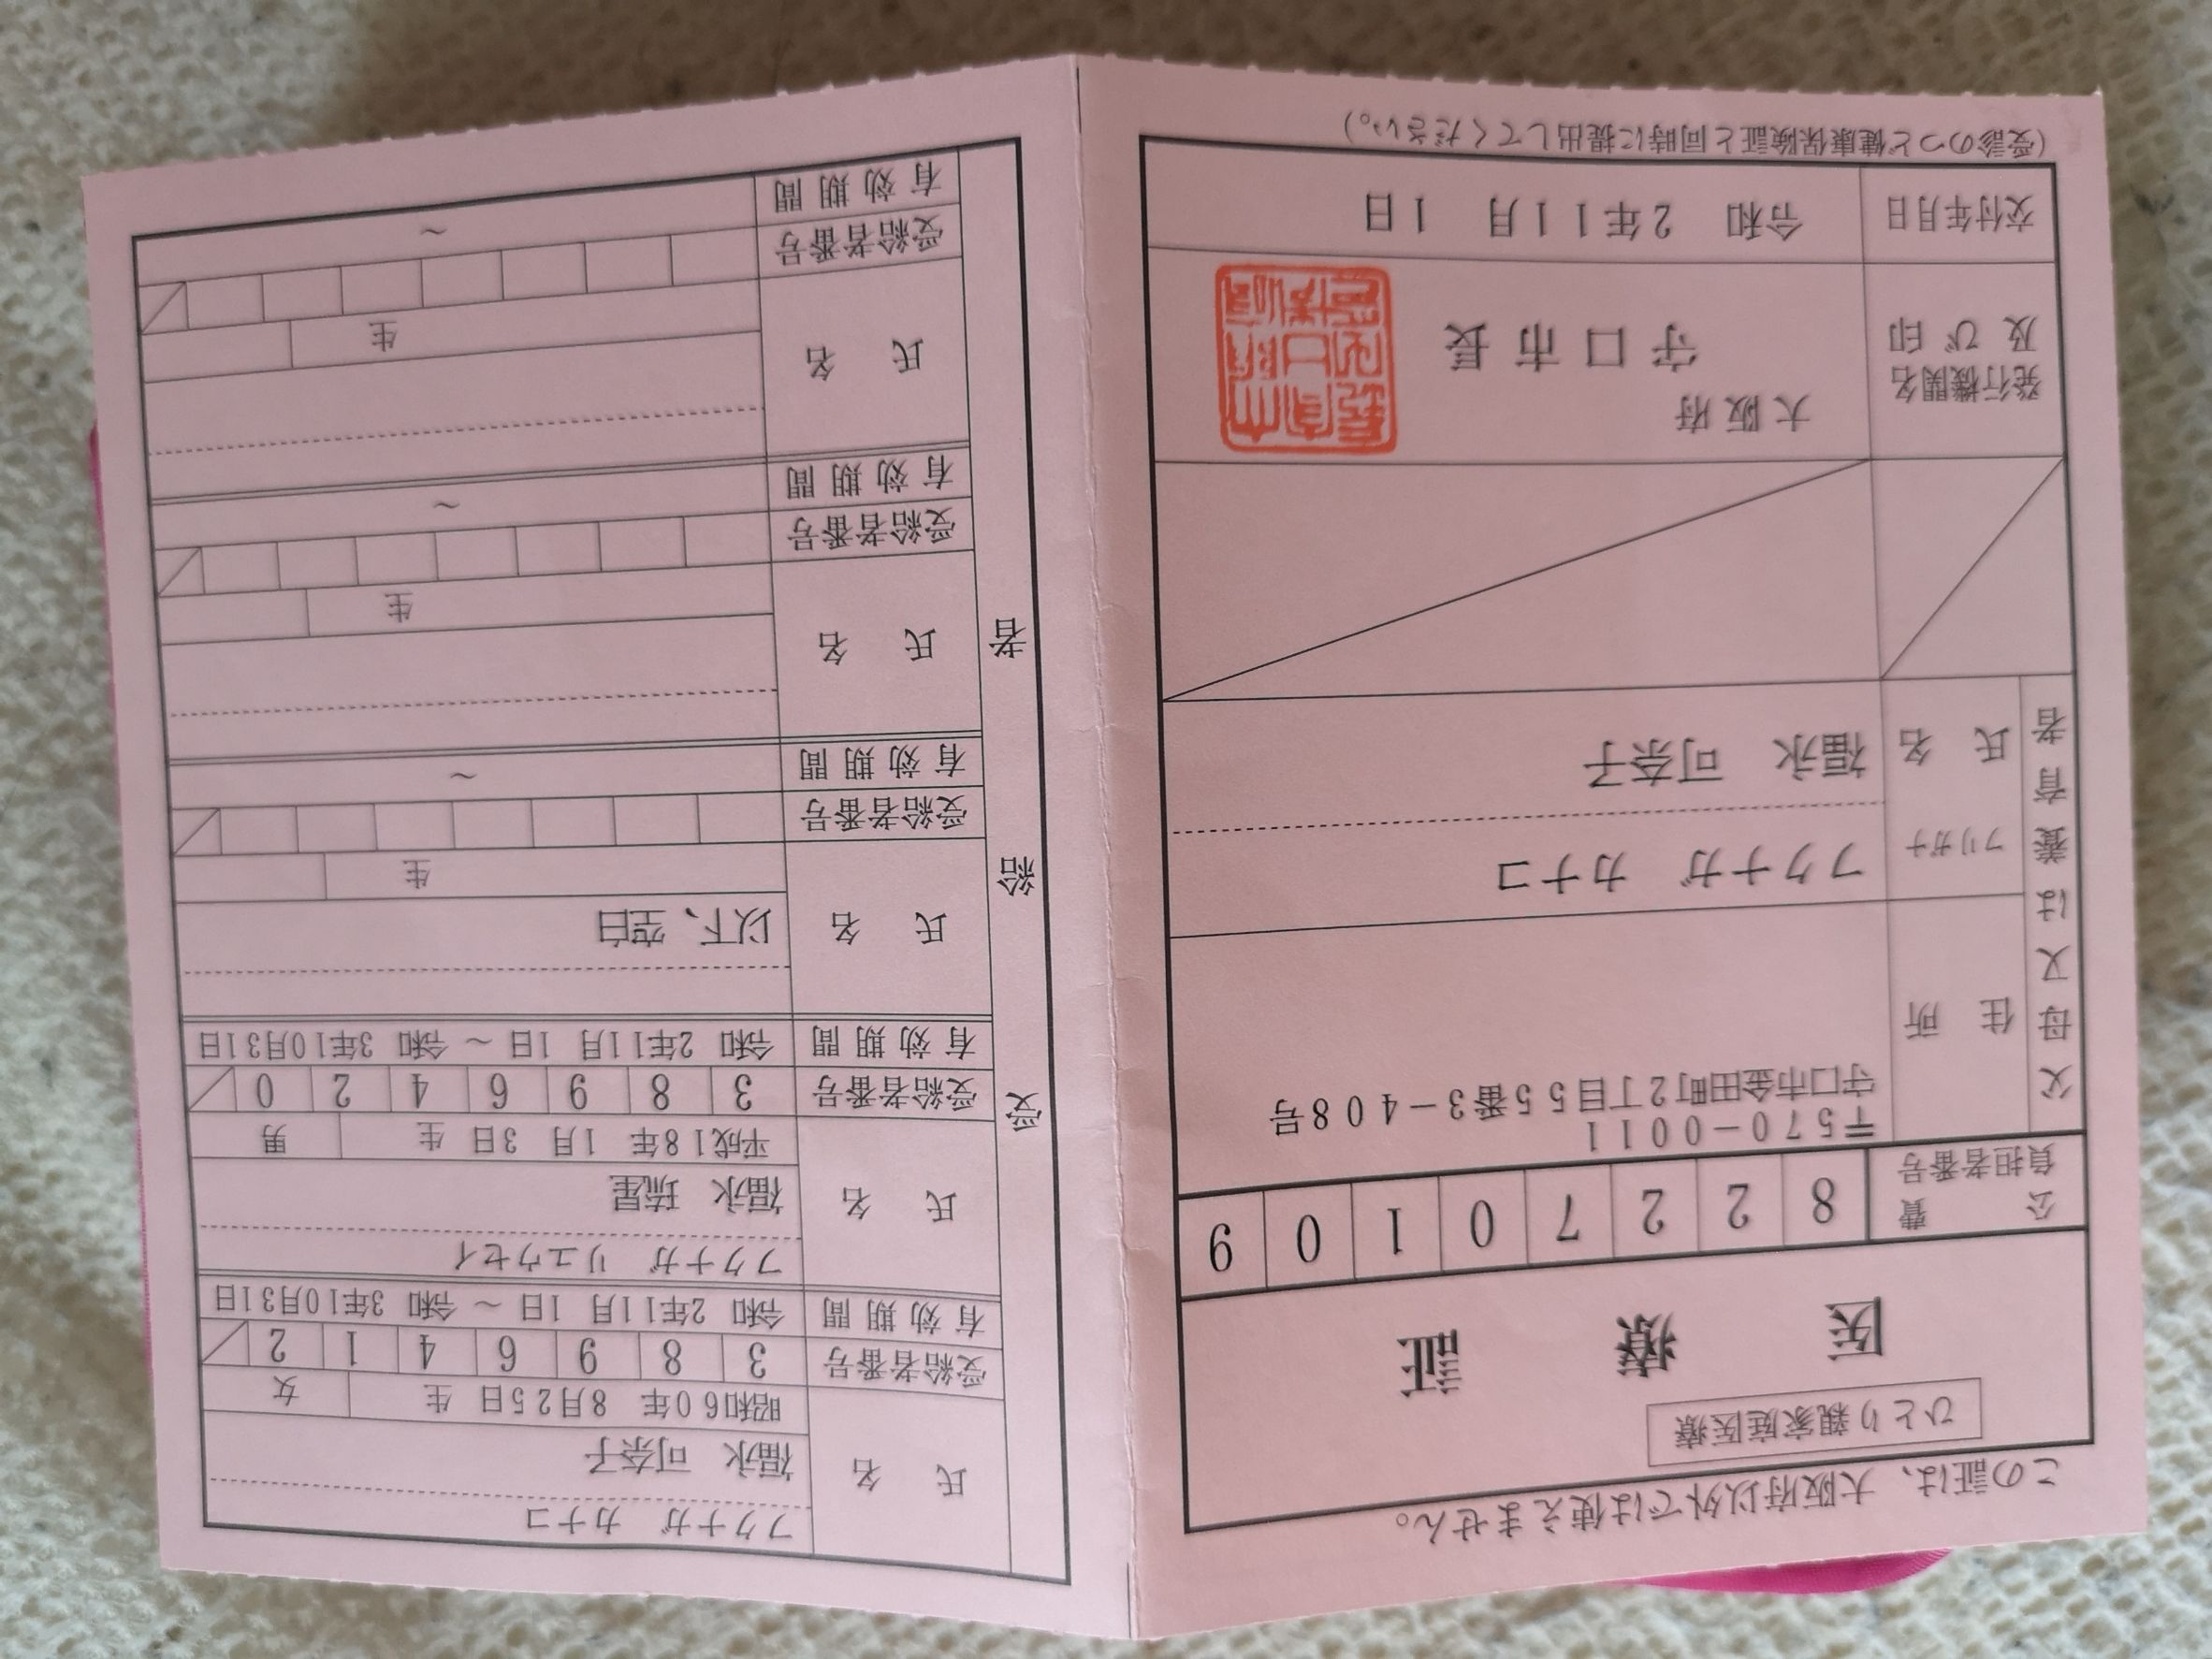 この証は、大阪府以外では使えません。
ひとり親家庭医療
医療証
公費負担者番号 8 2 2 7 0 1 0 9
父母又は養育者
住所
〒570-0011
守口市金田町2丁目55番3-408号
フリガナ フクナガ カナコ
氏名 福永 可奈子
発行機関名及び印
大阪府
守口市長
交付年月日 令和 2年11月 1日
(受診のつど健康保険証と同時に提出してください。)
受給者
フクナガ カナコ
氏名 福永 可奈子
昭和60年 8月25日 生 女
受給者番号 3 8 9 6 4 1 2
有効期間 令和 2年11月 1日 ~ 令和 3年10月31日
フクナガ リユウセイ
氏名 福永 琉星
平成18年 1月 3日 生 男
受給者番号 3 8 9 6 4 2 0
有効期間 令和 2年11月 1日 ~ 令和 3年10月31日
氏名 以下、空白
生
受給者番号
有効期間 ~
氏名
生
受給者番号
有効期間 ~
氏名
生
受給者番号
有効期間 ~